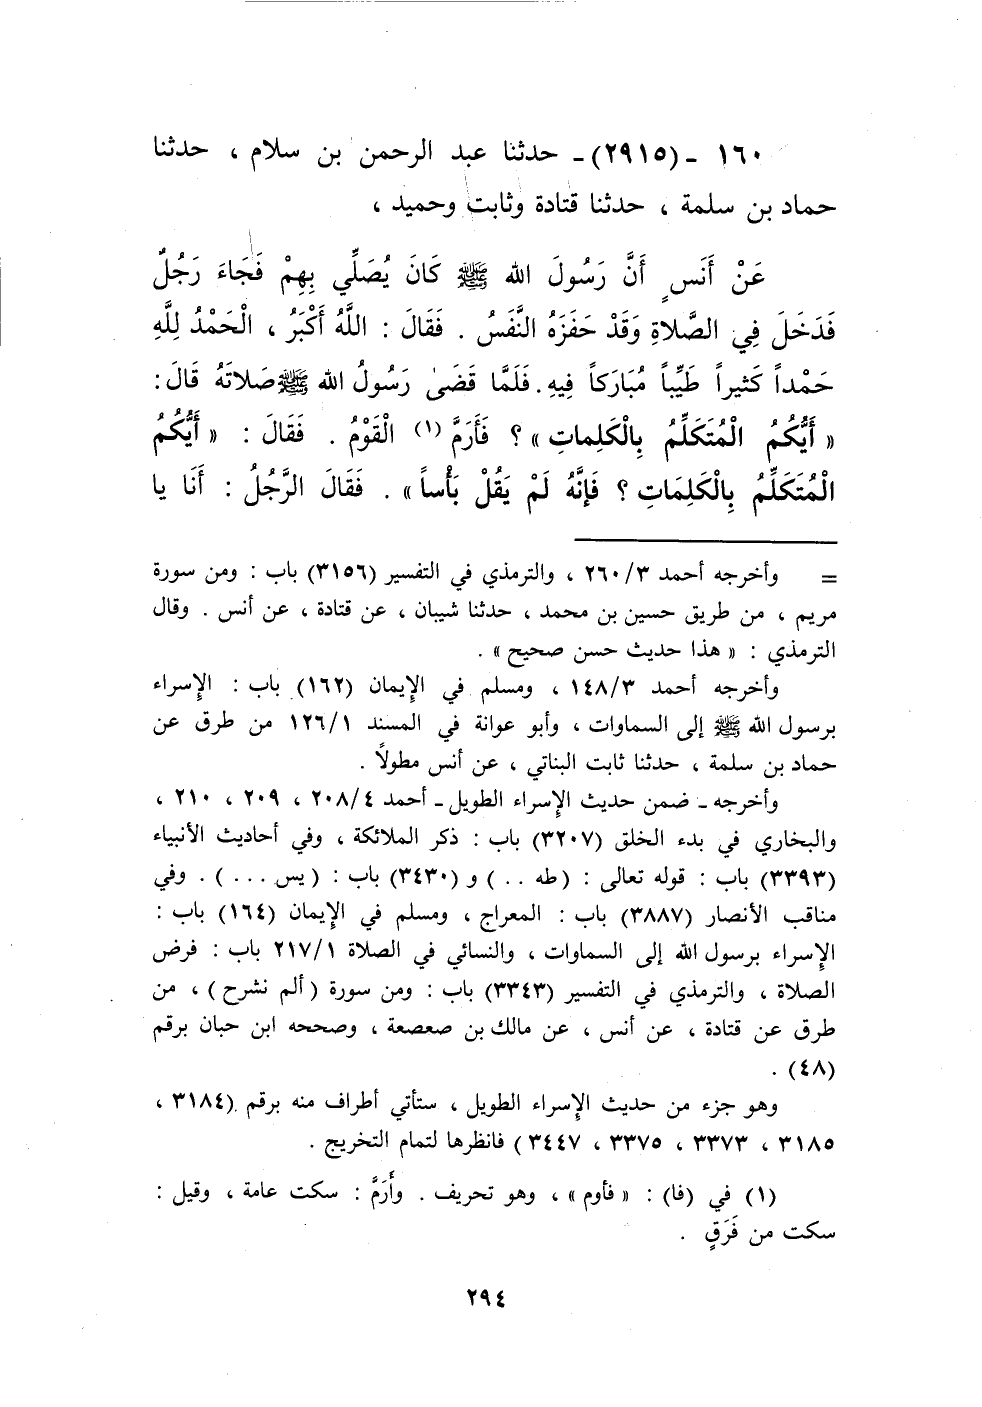 ١٦٠ - (٢٩١٥) - حدثنا عبد الرحمن بن سلام ، حدثنا
حماد بن سلمة ، حدثنا قتادة وثابت وحميد ،
عَنْ أَنَسٍ أَنَّ رَسُولَ الله ﷺ كَانَ يُصَلِّي بِهِمْ فَجَاءَ رَجُلٌ
فَدَخَلَ فِي الصَّلاةِ وَقَدْ حَفَزَهُ النَّفَسُ . فَقَالَ : اللَّهُ أَكْبَرُ ، الْحَمْدُ لِلَّهِ
حَمْداً كَثيراً طَيِّباً مُبَارَكاً فِيهِ. فَلَمَّا قَضَىٰ رَسُولُ الله ﷺ صَلاتَهُ قَالَ :
« أَيُّكُمُ الْمُتَكَلِّمُ بِالْكَلِماتِ » ؟ فَأَرَمَّ (١) الْقَوْمُ . فَقَالَ : « أَيُّكُمُ
الْمُتَكَلِّمُ بِالْكَلِمَاتِ ؟ فَإِنَّهُ لَمْ يَقُلْ بَأْساً » . فَقَالَ الرَّجُلُ : أَنَا يا
= وأخرجه أحمد ٢٦٠/٣ ، والترمذي في التفسير (٣١٥٦) باب : ومن سورة
مريم ، من طريق حسين بن محمد ، حدثنا شيبان ، عن قتادة ، عن أنس . وقال
الترمذي : « هذا حديث حسن صحيح » .
وأخرجه أحمد ١٤٨/٣ ، ومسلم في الإِيمان (١٦٢) باب : الإِسراء
برسول الله ﷺ إلى السماوات ، وأبو عوانة في المسند ١٢٦/١ من طرق عن
حماد بن سلمة ، حدثنا ثابت البناني ، عن أنس مطولاً .
وأخرجه - ضمن حديث الإِسراء الطويل - أحمد ٢٠٨/٤ ، ٢٠٩ ، ٢١٠ ،
والبخاري في بدء الخلق (٣٢٠٧) باب : ذكر الملائكة ، وفي أحاديث الأنبياء
(٣٣٩٣) باب : قوله تعالى : ( طه . . ) و (٣٤٣٠) باب : ( يس . . . ) . وفي
مناقب الأنصار (٣٨٨٧) باب : المعراج ، ومسلم في الإِيمان (١٦٤) باب :
الإِسراء برسول الله إلى السماوات ، والنسائي في الصلاة ٢١٧/١ باب : فرض
الصلاة ، والترمذي في التفسير (٣٣٤٣) باب : ومن سورة ( ألم نشرح ) ، من
طرق عن قتادة ، عن أنس ، عن مالك بن صعصعة ، وصححه ابن حبان برقم
(٤٨) .
وهو جزء من حديث الإِسراء الطويل ، ستأتي أطراف منه برقم (٣١٨٤ ،
٣١٨٥ ، ٣٣٧٣ ، ٣٣٧٥ ، ٣٤٤٧ ) فانظرها لتمام التخريج .
(١) في (فا) : « فأوم » ، وهو تحريف . وأَرَمَّ : سكت عامة ، وقيل :
سكت من فَرَقٍ .
٢٩٤